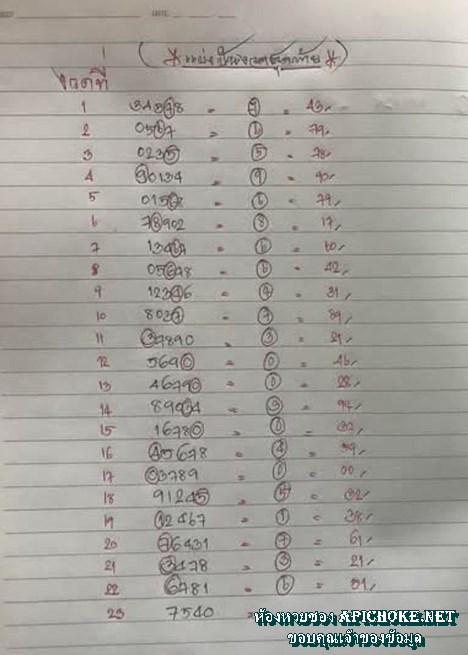 งวดที่
1 34578 = 7 = 43
2 0567 = 6 = 79
3 0235 = 5 = 78
4 90134 = 9 = 90
5 01568 = 6 = 79
6 78902 = 8 = 17
7 13467 = 6 = 60
8 05678 = 6 = 42
9 12346 = 4 = 31
10 8027 = 7 = 89
11 37890 = 3 = 21
12 5690 = 0 = 46
13 46790 = 0 = 28
14 89034 = 3 = 94
15 16780 = 0 = 32
16 45678 = 4 = 59
17 03789 = 0 = 00
18 91245 = 5 = 32
19 12467 = 1 = 38
20 76431 = 7 = 61
21 3478 = 3 = 21
22 6781 = 6 = 51
23 7540 =
ห้องหวยซอง APICHOKE.NET
ขอบคุณเจ้าของข้อมูล